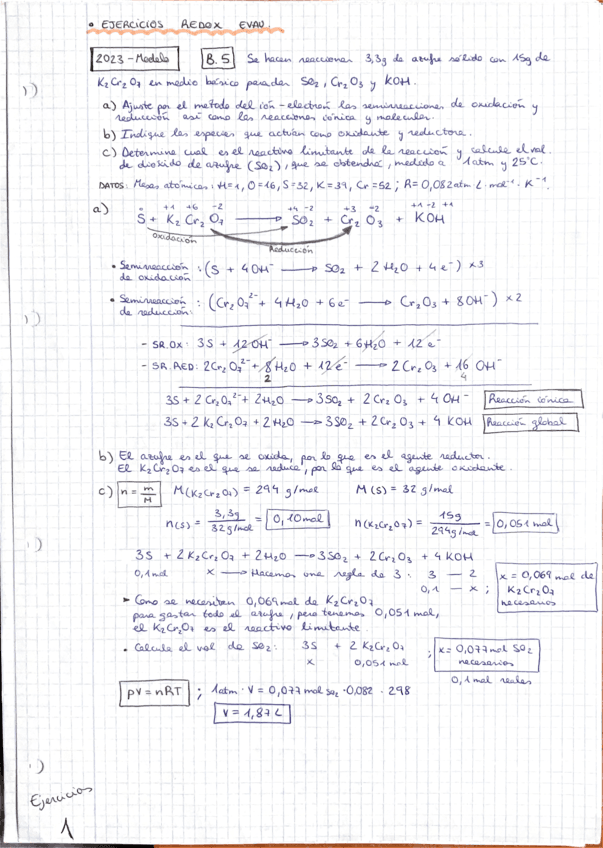 • EJERCICIOS REDOX EVAU.
2023 - Modelo B.5 Se hacen reaccionar 3,3g de azufre sólido con 15g de
K₂Cr₂O₇ en medio básico para dar SO₂, Cr₂O₃ y KOH.
a) Ajuste por el método del ión-electrón las semirreacciones de oxidación y
reducción así como las reacciones iónica y molecular.
b) Indique las especies que actúan como oxidante y reductora.
c) Determine cual es el reactivo limitante de la reacción y calcule el vol.
de dióxido de azufre (SO₂), que se obtendrá, medido a 1atm y 25°C.
DATOS: Masas atómicas: H=1, O=16, S=32, K=39, Cr=52; R=0,082 atm·L·mol⁻¹·K⁻¹.
a) 0 +1 +6 -2 +4 -2 +3 -2 +1 -2 +1
S + K₂Cr₂O₇ → SO₂ + Cr₂O₃ + KOH
oxidación
Reducción
• Semirreacción de oxidación : (S + 4OH⁻ → SO₂ + 2H₂O + 4e⁻) ×3
• Semirreacción de reducción : (Cr₂O₇²⁻ + 4H₂O + 6e⁻ → Cr₂O₃ + 8OH⁻) ×2
- SR.OX: 3S + 12OH⁻ → 3SO₂ + 6H₂O + 12e⁻
- SR.RED: 2Cr₂O₇²⁻ + 8H₂O + 12e⁻ → 2Cr₂O₃ + 16OH⁻
2 4
3S + 2Cr₂O₇²⁻ + 2H₂O → 3SO₂ + 2Cr₂O₃ + 4OH⁻ Reacción iónica
3S + 2K₂Cr₂O₇ + 2H₂O → 3SO₂ + 2Cr₂O₃ + 4KOH Reacción global
b) El azufre es el que se oxida, por lo que es el agente reductor.
El K₂Cr₂O₇ es el que se reduce, por lo que es el agente oxidante.
c) n = m/M M(K₂Cr₂O₇) = 294 g/mol M(S) = 32 g/mol
n(S) = 3,3g / 32g/mol = 0,10mol n(K₂Cr₂O₇) = 15g / 294g/mol = 0,051mol
3S + 2K₂Cr₂O₇ + 2H₂O → 3SO₂ + 2Cr₂O₃ + 4KOH
0,1mol x → Hacemos una regla de 3: 3 — 2
0,1 — x ; x = 0,069 mol de K₂Cr₂O₇ necesarios
▸ Como se necesitan 0,069mol de K₂Cr₂O₇
para gastar todo el azufre, pero tenemos 0,051mol,
el K₂Cr₂O₇ es el reactivo limitante.
• Calcule el vol de SO₂: 3S + 2K₂Cr₂O₇ ; x = 0,077mol SO₂ necesarios
x 0,051mol
0,1mol reales
PV = nRT ; 1atm · V = 0,077mol SO₂ · 0,082 · 298
V = 1,87L
Ejercicios
1